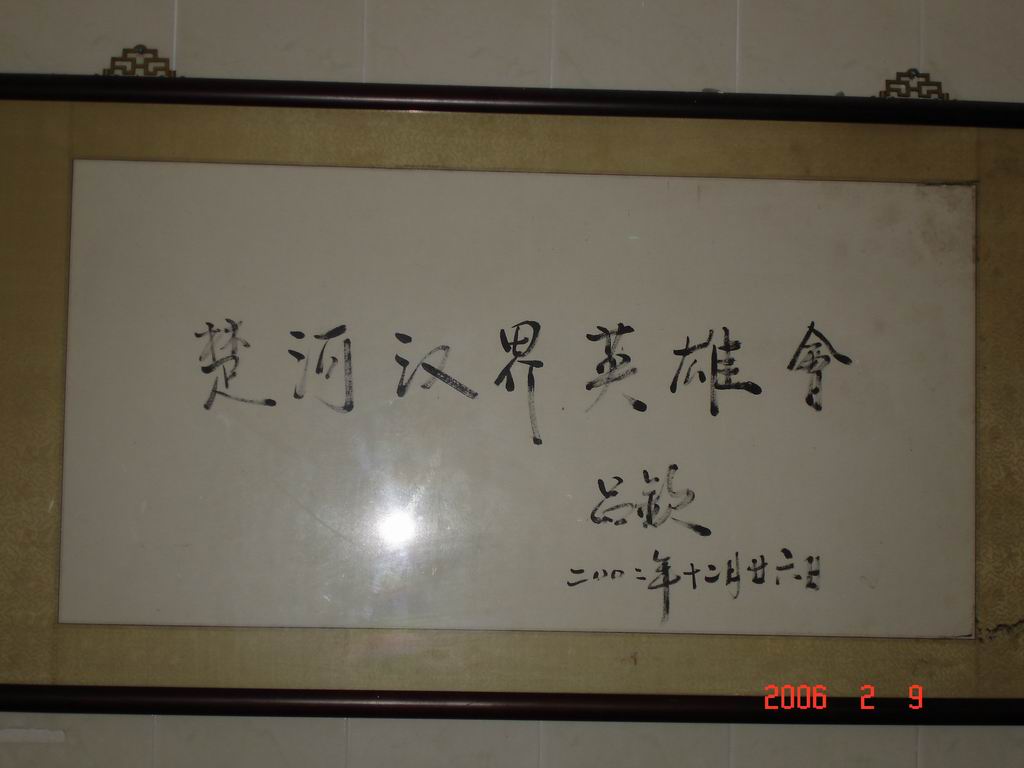 楚河汉界英雄會
吕钦
二〇〇二年十二月廿六日
2006 2 9